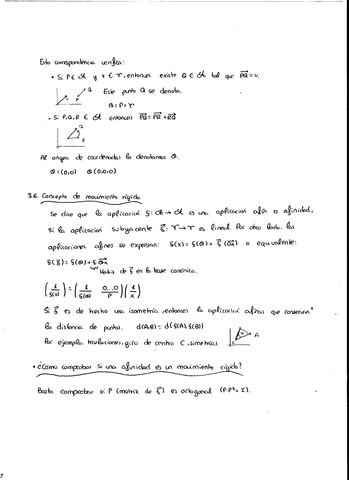 Esta correspondencia verifica:
• Si P ∈ A y v ∈ V, entonces existe Q ∈ A tal que PQ⃗ = v.
P Q Este punto Q se denota
Q = P + v
• Si P, Q, R ∈ A entonces PQ⃗ = PR⃗ + RQ⃗
R
Al origen de coordenadas lo denotamos O.
O = (0,0) O(0,0,0)
3.6. Concepto de movimiento rígido
Se dice que la aplicación f: A → A es una aplicación afín o afinidad,
si la aplicación subyacente f⃗: V → V es lineal. Por otro lado, las
aplicaciones afines se expresan: f(x) = f(O) + f⃗(OX⃗) o equivalente:
f(x) = f(O) + P · OX⃗
Matriz de f⃗ en la base canónica.
(1 / f(x)) = (1 0...0 / f(O) P)(1 / x)
Si f⃗ es de hecho una isometría, entonces la aplicación afín que conserva
la distancia de puntos. d(A,B) = d(f(A), f(B))
Por ejemplo, traslaciones, giro de centro C, simetrías. A
• ¿Cómo comprobar si una afinidad es un movimiento rígido?
Basta comprobar si P (matriz de f⃗) es ortogonal (P·Pᵗ = I).